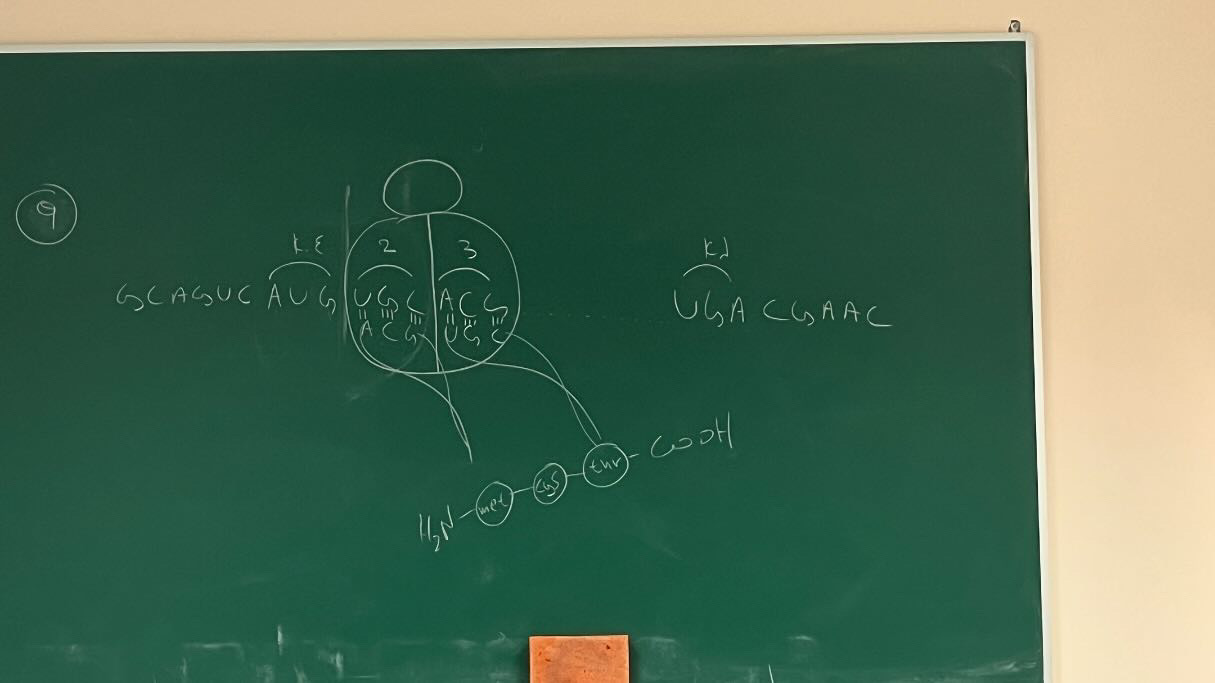 9
K.E 2 3 K.d
GCAGUC AUG UGC ACG UGA CGAAC
ACG UGC
H₂N - met - cys - thr - COOH